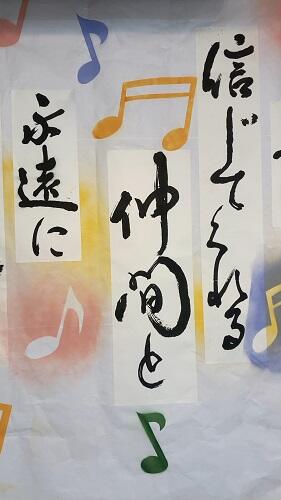 信じてくれる
仲間と
永遠に